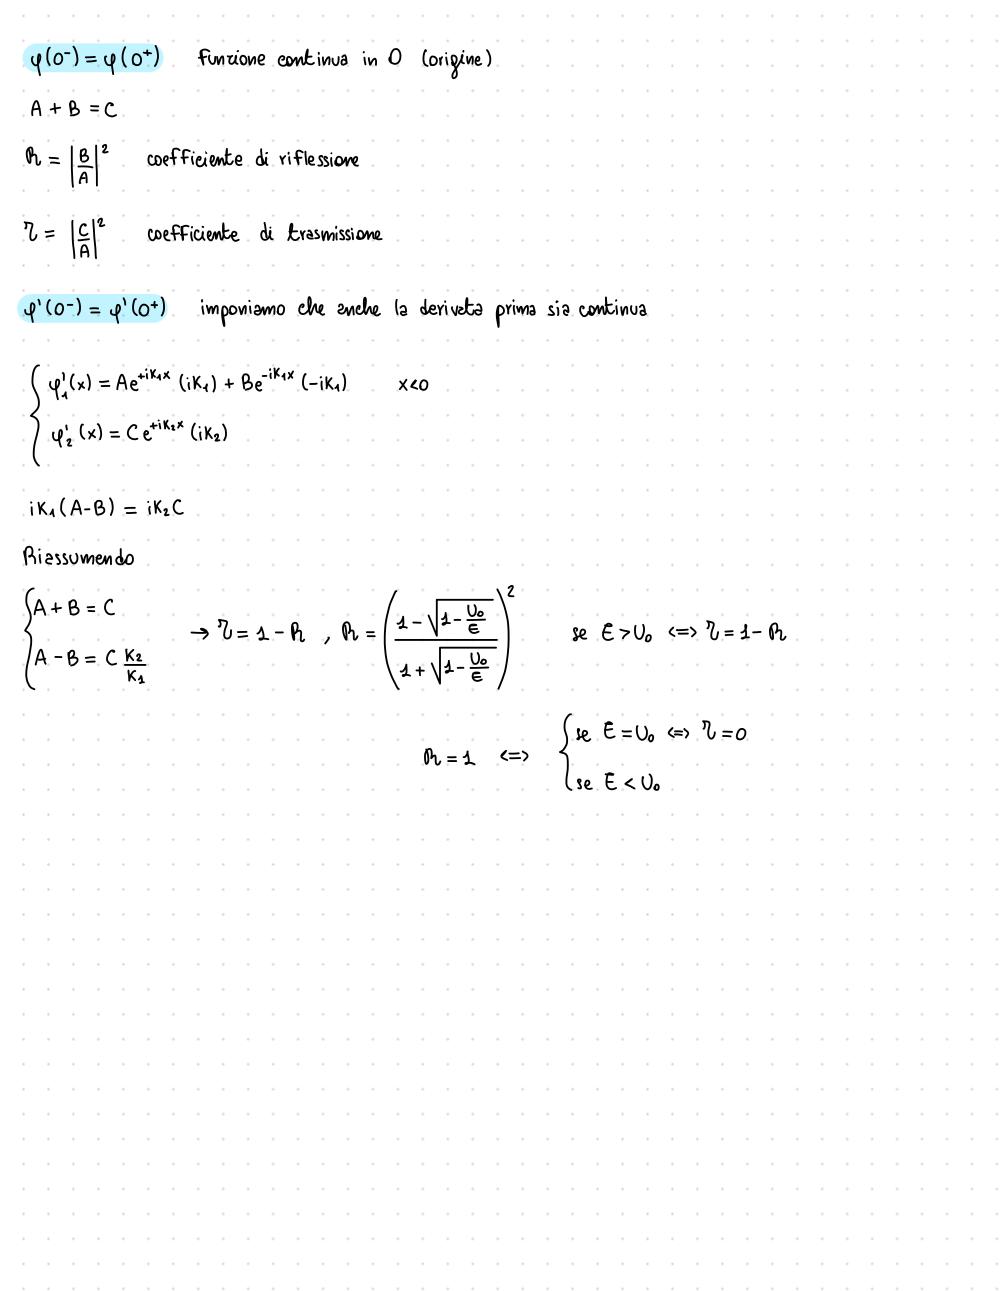 φ(0⁻) = φ(0⁺) funzione continua in 0 (origine)
A + B = C
R = |B/A|² coefficiente di riflessione
τ = |C/A|² coefficiente di trasmissione
φ'(0⁻) = φ'(0⁺) imponiamo che anche la derivata prima sia continua
φ₁'(x) = Ae^{+iK₁x} (iK₁) + Be^{-iK₁x} (-iK₁) x<0
φ₂'(x) = Ce^{+iK₂x} (iK₂)
iK₁(A-B) = iK₂C
Riassumendo
{A + B = C
{A - B = C K₂/K₁ → τ = 1 - R , R = ((1 - √(1 - U₀/E)) / (1 + √(1 - U₀/E)))² se E > U₀ <=> τ = 1 - R
R = 1 <=> { se E = U₀ <=> τ = 0
se E < U₀